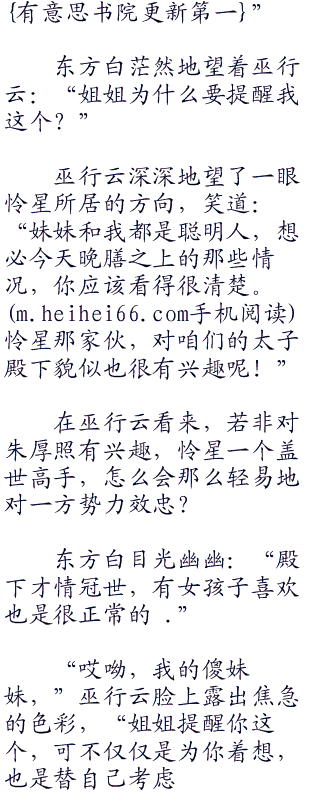 {有意思书院更新第一}”
东方白茫然地望着巫行
云：“姐姐为什么要提醒我
这个？”
巫行云深深地望了一眼
怜星所居的方向，笑道：
“妹妹和我都是聪明人，想
必今天晚膳之上的那些情
况，你应该看得很清楚。
(m.heihei66.com手机阅读)
怜星那家伙，对咱们的太子
殿下貌似也很有兴趣呢！”
在巫行云看来，若非对
朱厚照有兴趣，怜星一个盖
世高手，怎么会那么轻易地
对一方势力效忠？
东方白目光幽幽：“殿
下才情冠世，有女孩子喜欢
也是很正常的 .”
“哎呦，我的傻妹
妹，”巫行云脸上露出焦急
的色彩，“姐姐提醒你这
个，可不仅仅是为你着想，
也是替自己考虑